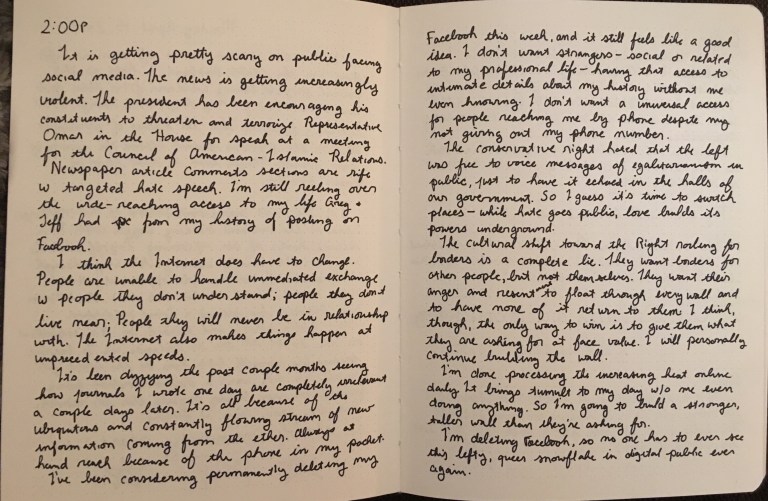 2:00P
It is getting pretty scary on public facing
social media. The news is getting increasingly
violent. The president has been encouraging his
constituents to threaten and terrorize Representative
Omar in the House for speak at a meeting
for the Council of American-Islamic Relations.
Newspaper article comments sections are rife
w targeted hate speech. I'm still reeling over
the wide-reaching access to my life Greg +
Jeff had from my history of posting on
Facbook.
I think the Internet does have to change.
People are unable to handle unmediated exchange
w people they don't understand; people they don't
live near; People they will never be in relationship
with. The Internet also makes things happen at
unprecedented speeds.
It's been dizzying the past couple months seeing
how journals I wrote one day are completely irrelevant
a couple days later. It's all because of the
ubiquitous and constantly flowing stream of new
information coming from the ether. Always at
hand reach because of the phone in my pocket.
I've been considering permanently deleting my
Facebook this week, and it still feels like a good
idea. I don't want strangers - social or related
to my professional life - having that access to
intimate details about my history without me
even knowing. I don't want a universal access
for people reaching me by phone despite my
not giving out my phone number.
The conservative right hated that the left
was free to voice messages of egalitarianism in
public, just to have it echoed in the halls of
our government. So I guess it's time to switch
places - while hate goes public, love builds its
powers underground.
The cultural shift toward the Right rooting for
borders is a complete lie. They want borders for
other people, but not themselves. They want their
anger and resentment to float through every wall and
to have none of it return to them. I think,
though, the only way to win is to give them what
they are asking for at face value. I will personally
continue building the wall.
I'm done processing the increasing heat online
daily. It brings tumult to my day w/o me even
doing anything. So I'm going to build a stronger,
taller wall than they're asking for.
I'm deleting Facebook, so no one has to ever see
this lefty, queer snowflake in digital public ever
again.